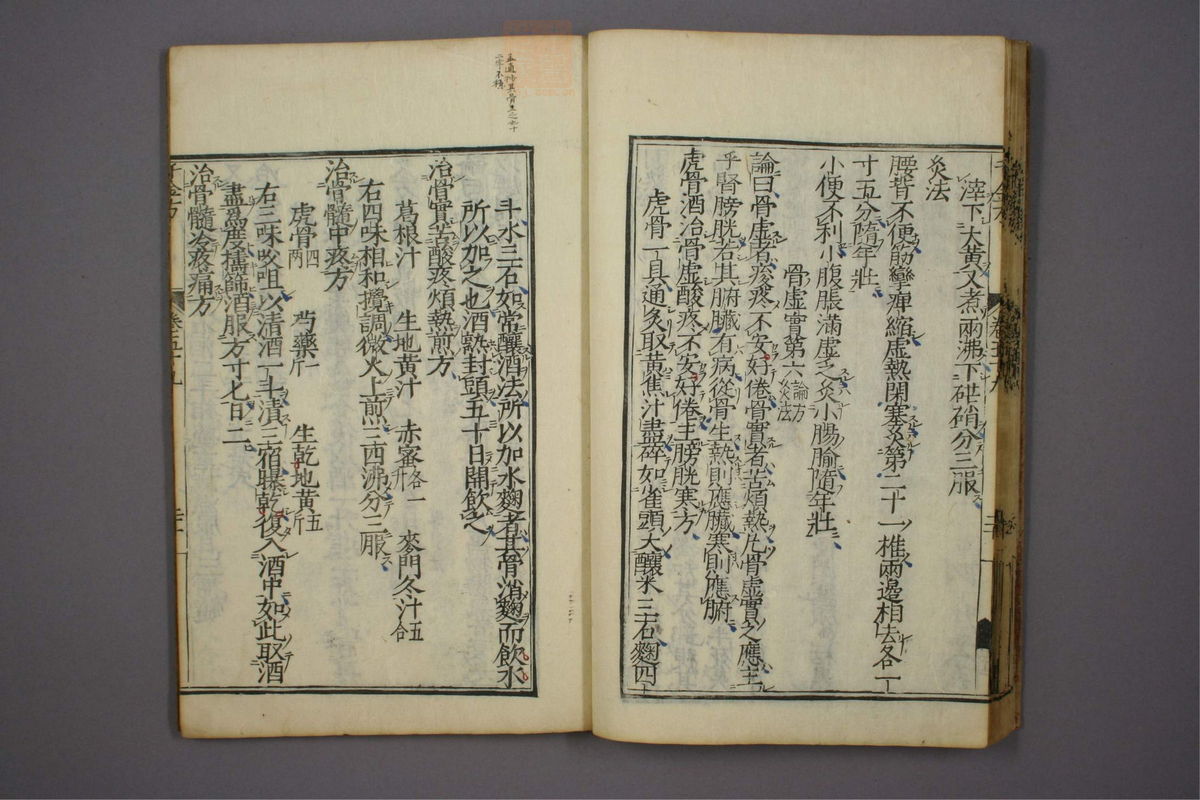 滓下大黃又煮兩沸下硭硝分三服
灸法
腰背不便筋攣痺縮虛熱閉塞灸第二十一椎兩邊相去各一
寸五分隨年壯
小便不利小腹脹滿虛乏灸小腸腧隨年壯
骨虛實第六論方灸法
論曰骨虛者痠疼不安好倦骨實者苦煩熱凡骨虛實之應主
乎腎膀胱若其腑臟有病從骨生熱則應臟寒則應腑
虎骨酒治骨虛酸疼不安好倦主膀胱寒方
虎骨一具通炙取黃焦汁盡碎如雀頭大釀米三石麴四
斗水三石如常釀酒法所以加水麴者其骨消麴而飲水
所以加之也酒熟封頭五十日開飲之
治骨實苦酸疼煩熱煎方
葛根汁 生地黃汁 赤蜜各一升 麥門冬汁五合
右四味相和攪調微火上煎三四沸分三服
治骨髓中疼方
虎骨四兩 芍藥一斤 生乾地黃五斤
右三味㕮咀以清酒一斗漬三宿曝乾復入酒中如此取酒
盡爲度擣篩酒服方寸匕日三
治骨髓冷疼痛方